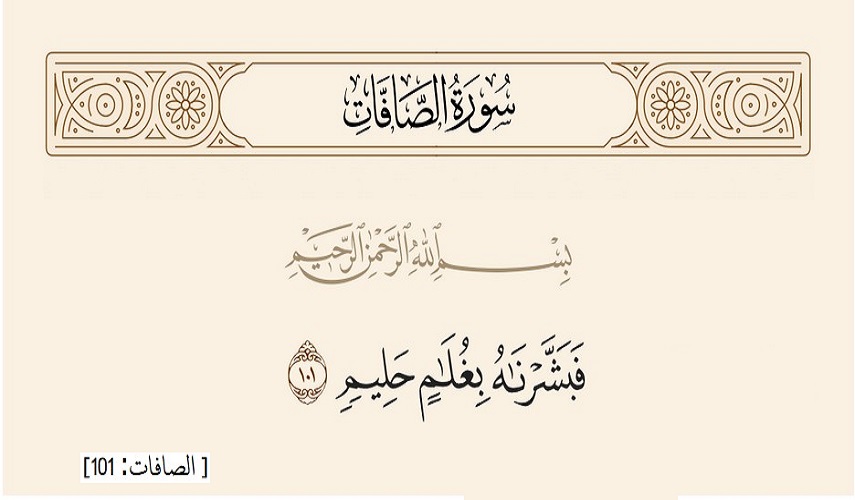 سُورَةُ الصَّافَّاتِ
بِسْمِ ٱللَّهِ ٱلرَّحْمَٰنِ ٱلرَّحِيمِ
فَبَشَّرْنَٰهُ بِغُلَٰمٍ حَلِيمٍ ١٠١
[ الصافات: 101]